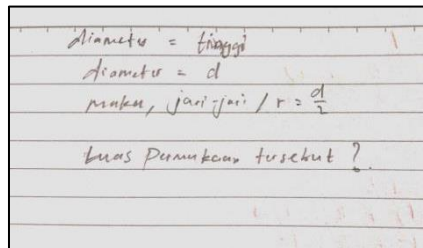 diameter = tinggi
diameter = d
maka, jari-jari / r = d/2
luas permukaan tersebut ?